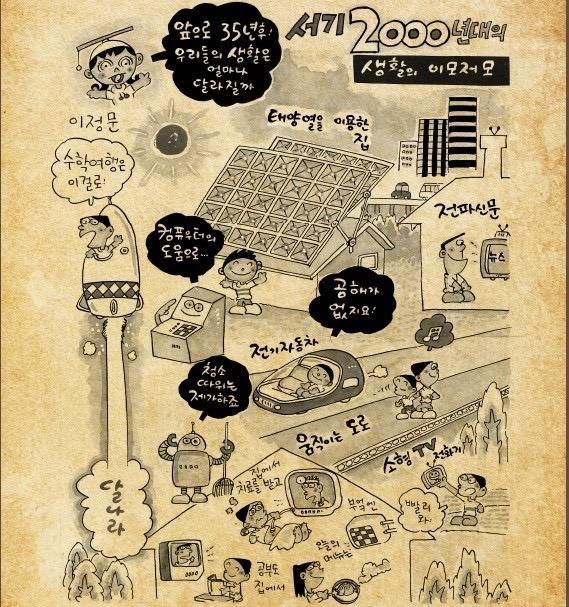 앞으로 35년후!
우리들의 생활은
얼마나
달라질까
서기 2000년대의
생활의 이모저모
이정문
태양열을 이용한
집
수학여행은
이걸로!
전파신문
뉴스
컴퓨우터의
도움으로...
공해가
없지요!
전기자동차
청소
따위는
제가하죠
움직이는 도로
소형 TV 전화기
집에서
치료를 받고
부엌엔
빨리
와!
달나라
오늘의
메뉴는
공부도
집에서